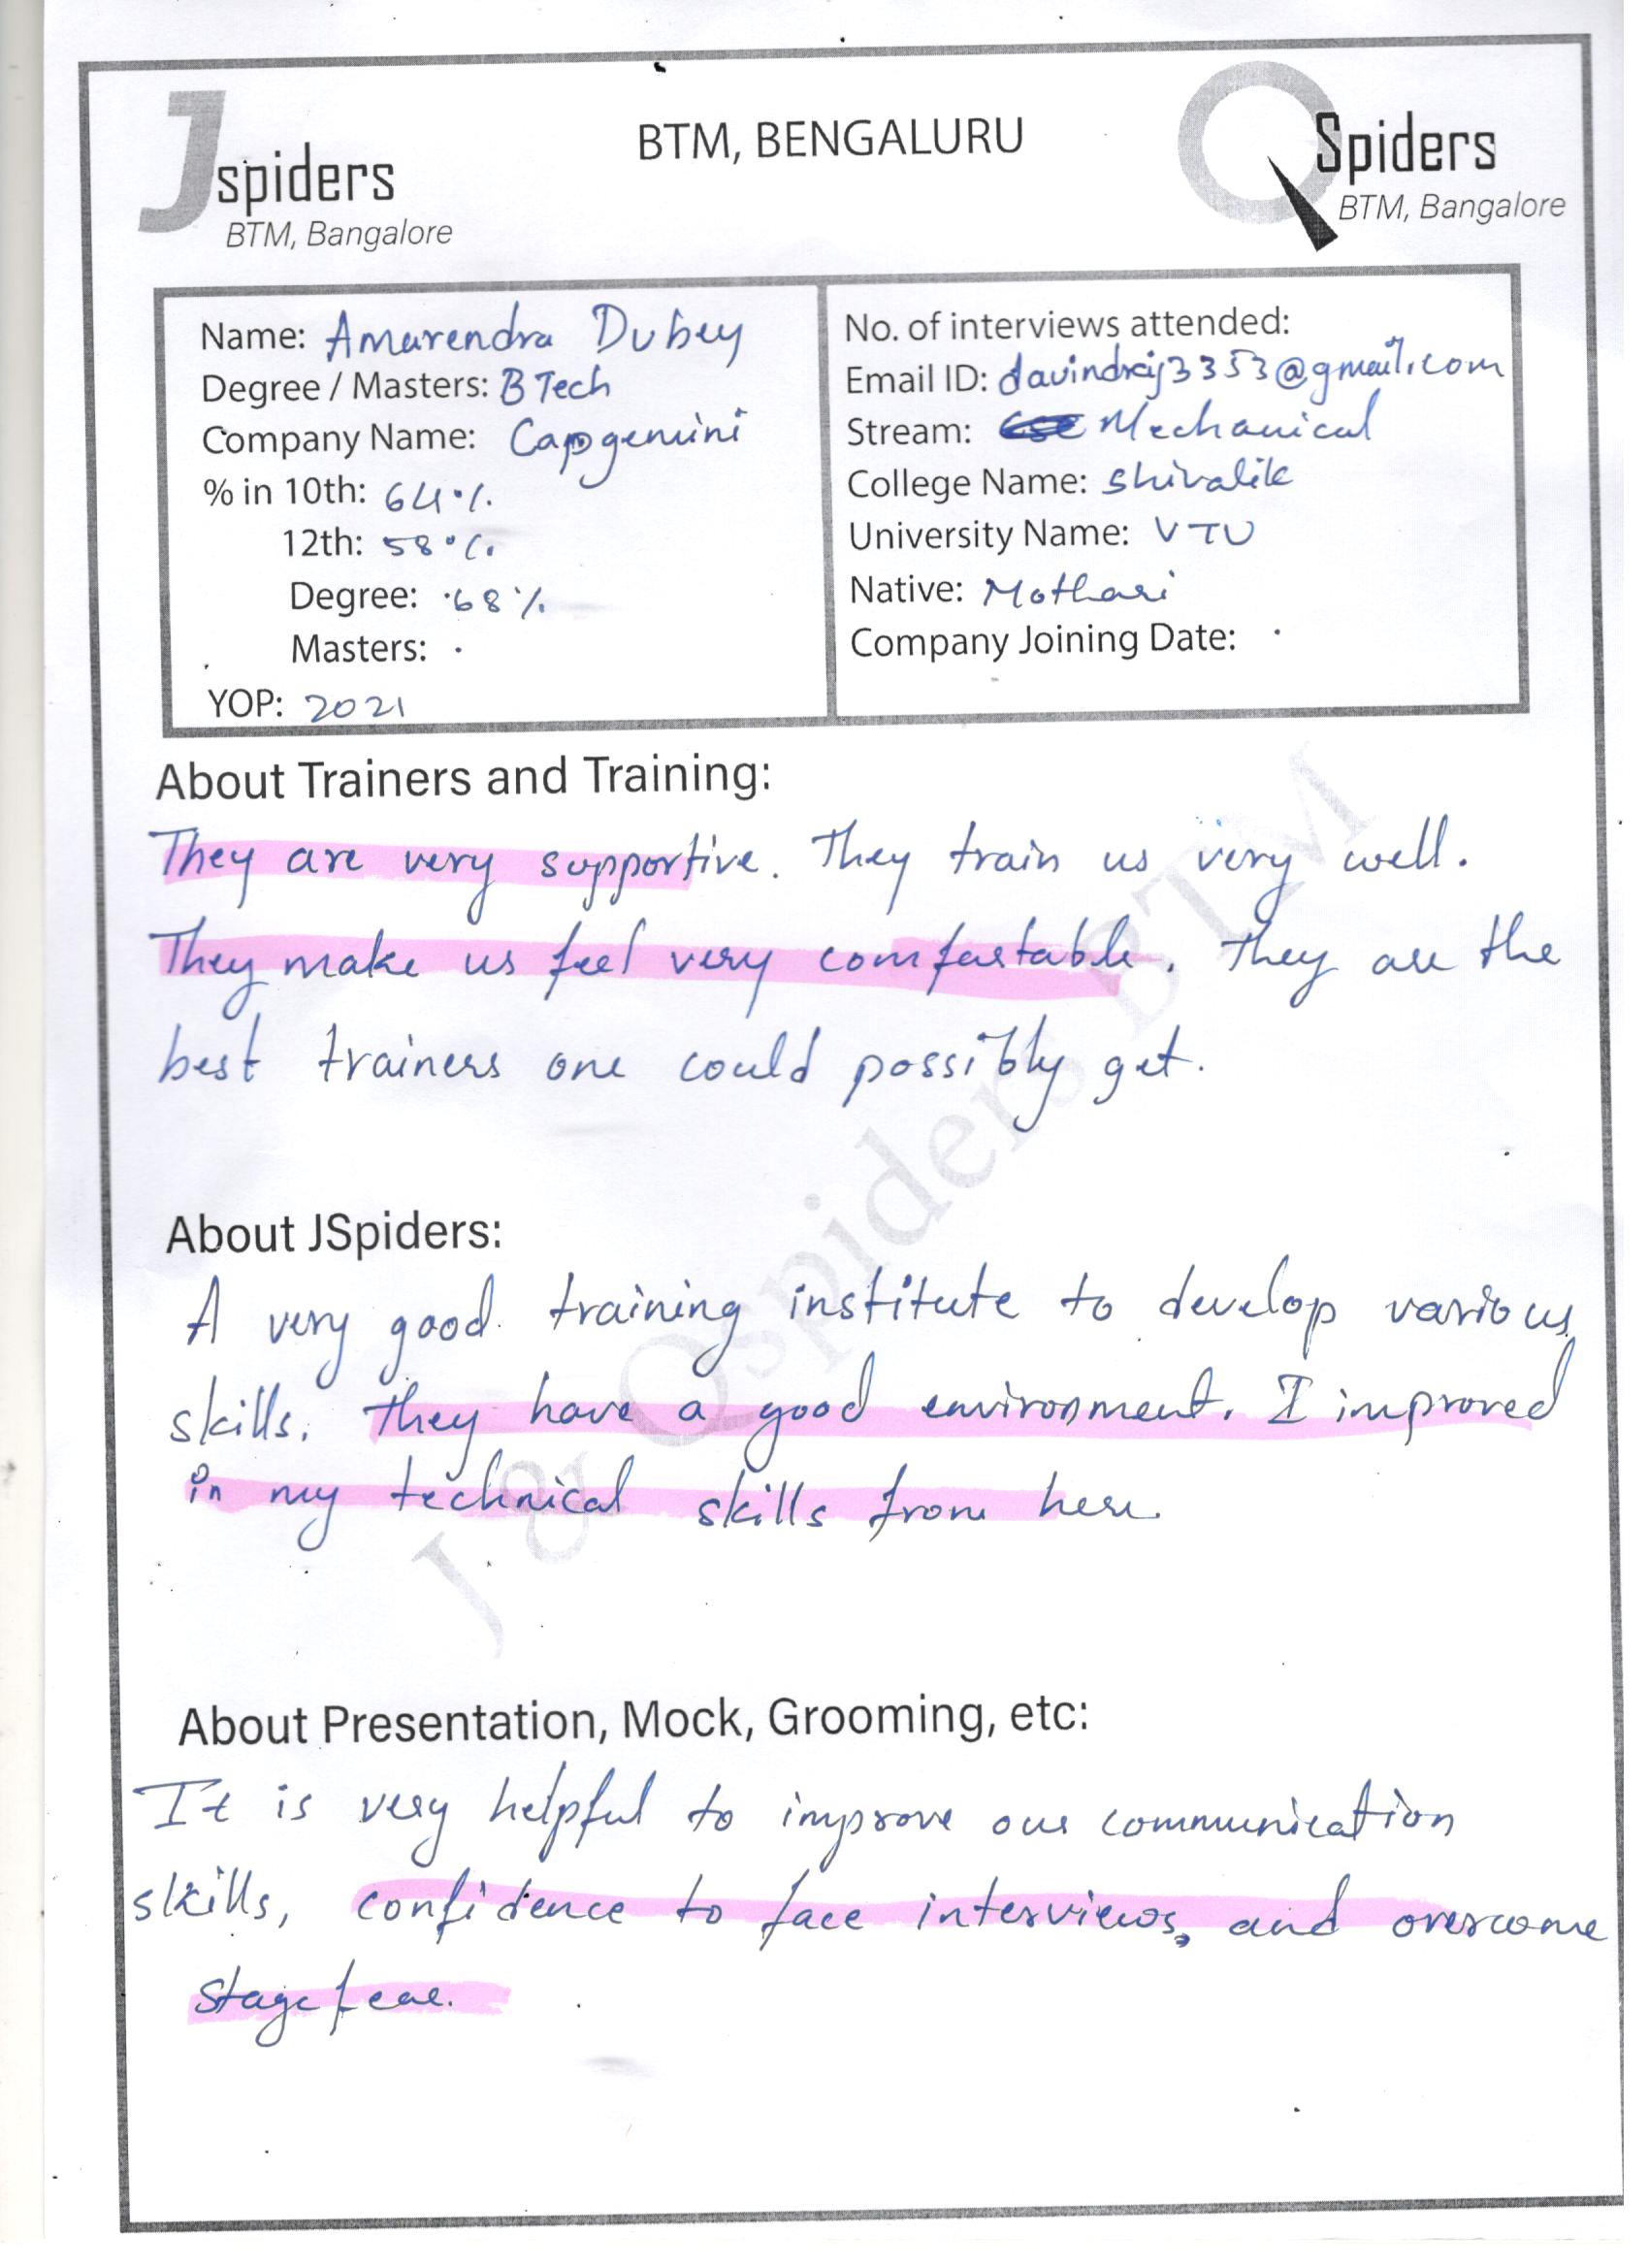 Jspiders
BTM, Bangalore
BTM, BENGALURU
QSpiders
BTM, Bangalore
Name: Amarendra Dubey
Degree / Masters: B Tech
Company Name: Capgemini
% in 10th: 64%
12th: 58%
Degree: 68%
Masters:
YOP: 2021
No. of interviews attended:
Email ID: davindraj3353@gmail.com
Stream: Mechanical
College Name: Shivalik
University Name: VTU
Native: Mothari
Company Joining Date:
About Trainers and Training:
They are very supportive. They train us very well.
They make us feel very comfortable. They are the
best trainers one could possibly get.
About JSpiders:
A very good training institute to develop various
skills. They have a good environment. I improved
in my technical skills from here.
About Presentation, Mock, Grooming, etc:
It is very helpful to improve our communication
skills, confidence to face interviews, and overcome
stage fear.
J & QSpiders BTM